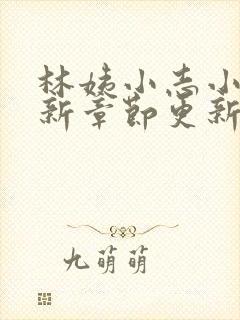 林姨小志小
新章节更新
九萌萌